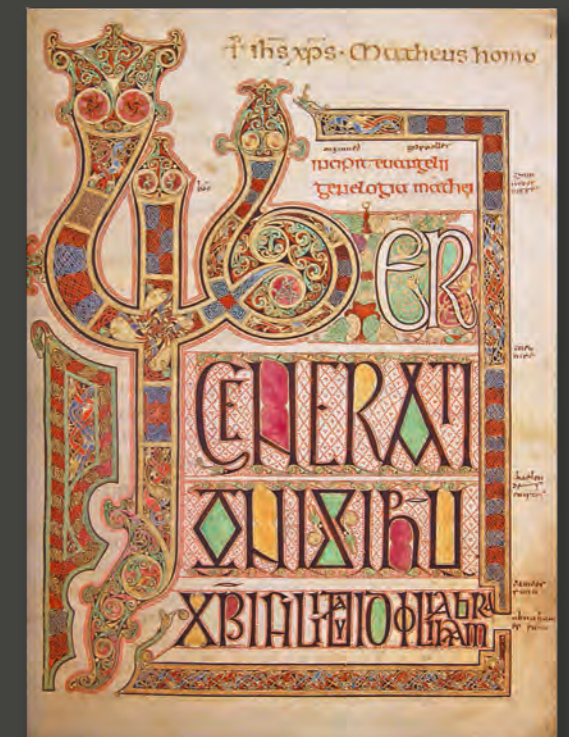 ihs xps · Matheus homo
incipit euangelii
genelogia mathei
LIBER
GENERATI
ONIS IHU
XPI FILII DAVID FILII ABRAHAM